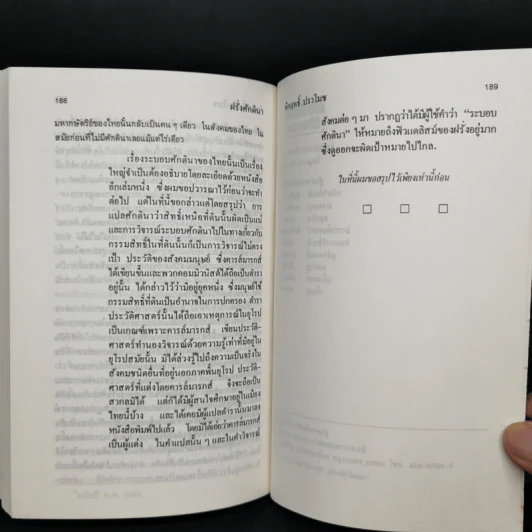 188
ฝรั่งศักดินา
มหากษัตริย์ของไทยนั้นกลับเป็นคน ๆ เดียว ในสังคมของไทย ใน
สมัยก่อนที่ไม่มีศักดินาเลยแม้แต่ไร่เดียว
เรื่องระบอบศักดินาของไทยนั้นเป็นเรื่อง
ใหญ่จำเป็นต้องอธิบายโดยละเอียดด้วยหนังสือ
อีกเล่มหนึ่ง ซึ่งผมขอปวารณาไว้ก่อนว่าจะทำ
ต่อไป แต่ในที่นี้ขอกล่าวแต่โดยสรุปว่า การ
แปลศักดินาว่าสิทธิ์เหนือที่ดินนั้นผิดเป็นแน่
และการวิจารณ์ระบอบศักดินาไปในทางเกี่ยวกับ
กรรมสิทธิ์ในที่ดินนั้นก็เป็นการวิจารณ์ไม่ตรง
เป้า ประวัติของสังคมมนุษย์ ซึ่งคาร์ลมารกส์
ได้เขียนขึ้นและพวกคอมมิวนิสต์ได้ถือเป็นตำรา
อยู่นั้น ได้กล่าวไว้ว่ามีอยู่ยุคหนึ่ง ซึ่งมนุษย์ใช้
กรรมสิทธิ์ที่ดินเป็นอำนาจในการปกครอง ตำรา
ประวัติศาสตร์นั้นได้ถือเอาเหตุการณ์ในยุโรป
เป็นเกณฑ์เพราะคารล์มารกส์ เขียนประวัติ-
ศาสตร์ทำนองวิจารณ์ด้วยความรู้เท่าที่มีอยู่ใน
ยุโรปสมัยนั้น มิได้ล่วงรู้ไปถึงความเป็นจริงใน
สังคมชนิดอื่นที่อยู่นอกภาคพื้นยุโรป ประวัติ-
ศาสตร์ที่แต่งโดยคารล์มารกส์ จึงจะถือเป็น
สากลมิได้ แต่ก็ได้มีผู้สนใจศึกษาอยู่ในเมือง
ไทยนี้บ้าง และได้เคยมีผู้แปลตำรานั้นมาลง
หนังสือพิมพ์ไปแล้ว โดยมิได้เอ่ยว่าคารล์มารกส์
เป็นผู้แต่ง ในคำแปลนั้น ๆ และในคำวิจารณ์
คึกฤทธิ์ ปราโมช
189
สังคมต่อ ๆ มา ปรากฏว่าได้มีผู้ใช้คำว่า “ระบอบ
ศักดินา” ให้หมายถึงฟิวแดลิสม์ของฝรั่งอยู่มาก
ซึ่งดูออกจะผิดเป้าหมายไปไกล.
ในที่นี้ผมขอสรุปไว้เพียงเท่านี้ก่อน